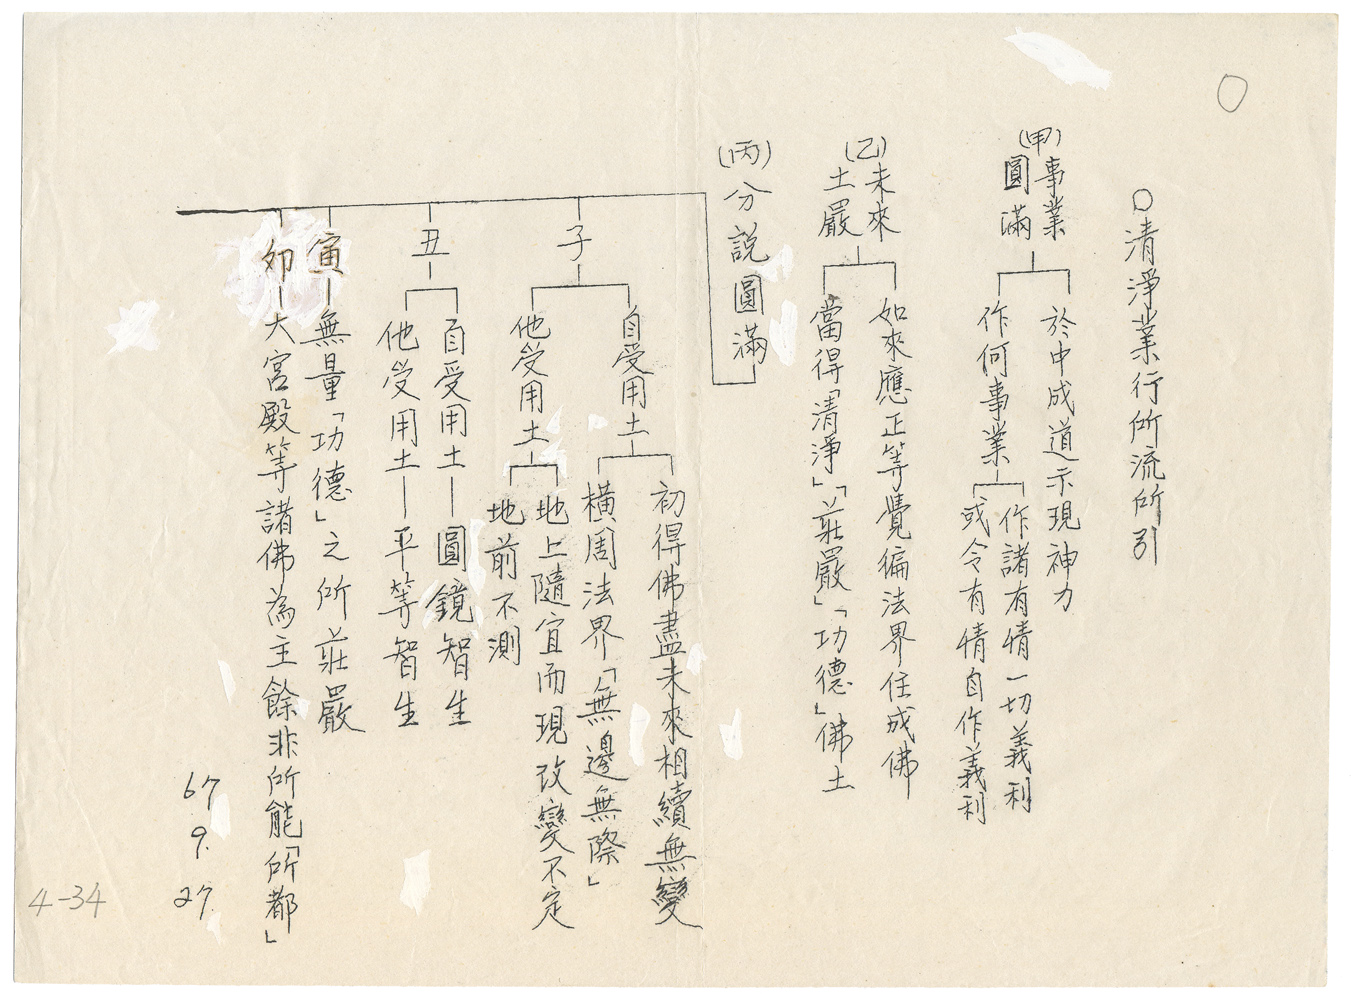 ○清淨業行所流所引
(甲)事業
圓滿
於中成道示現神力
作何事業
作諸有情一切義利
或令有情自作義利
(乙)未來
土嚴
如來應正等覺徧法界任成佛
當得「清淨」「莊嚴」「功德」佛土
(丙)分說圓滿
子
自受用土
初得佛盡未來相續無變
橫周法界「無邊無際」
他受用土
地上隨宜而現改變不定
地前不測
丑
自受用土—圓鏡智生
他受用土—平等智生
寅—無量「功德」之所莊嚴
卯—大宮殿等諸佛為主餘非所能「所都」
67
9.
27.
4-34